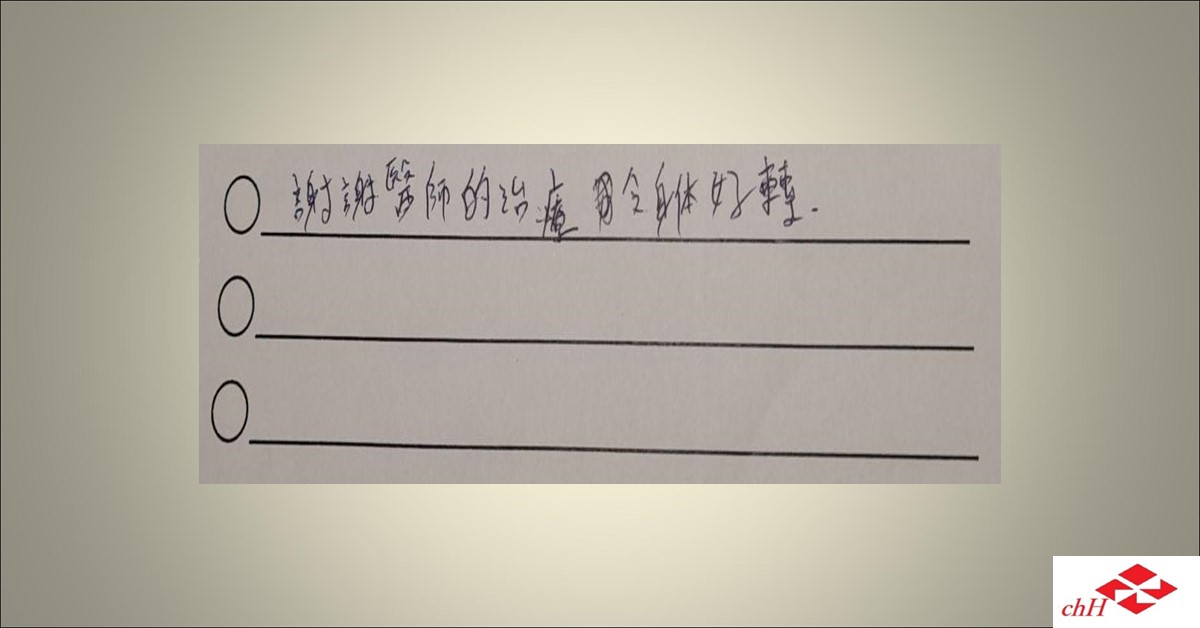 謝謝醫師的治療 令身体好轉.
chH